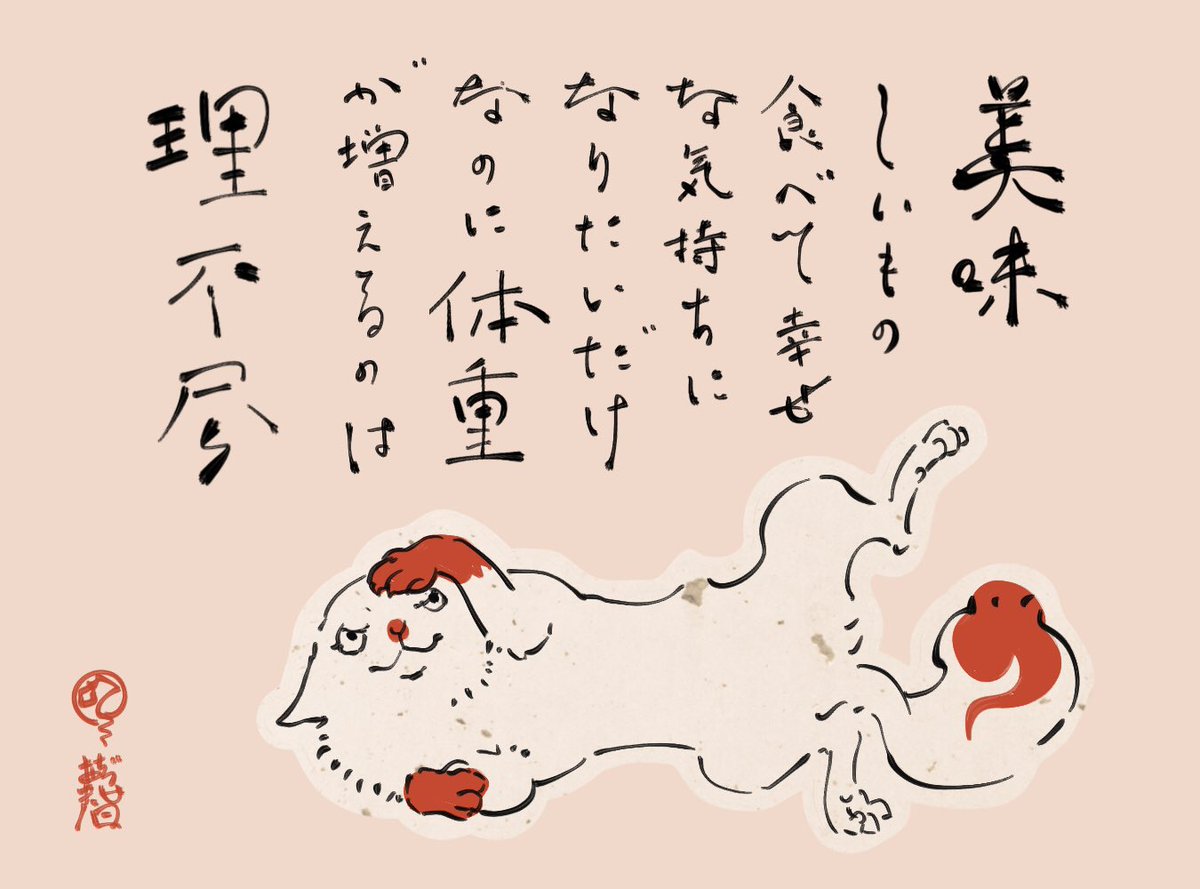 美味
しいもの
食べて幸せ
な気持ちに
なりたいだけ
なのに体重
が増えるのは
理不尽